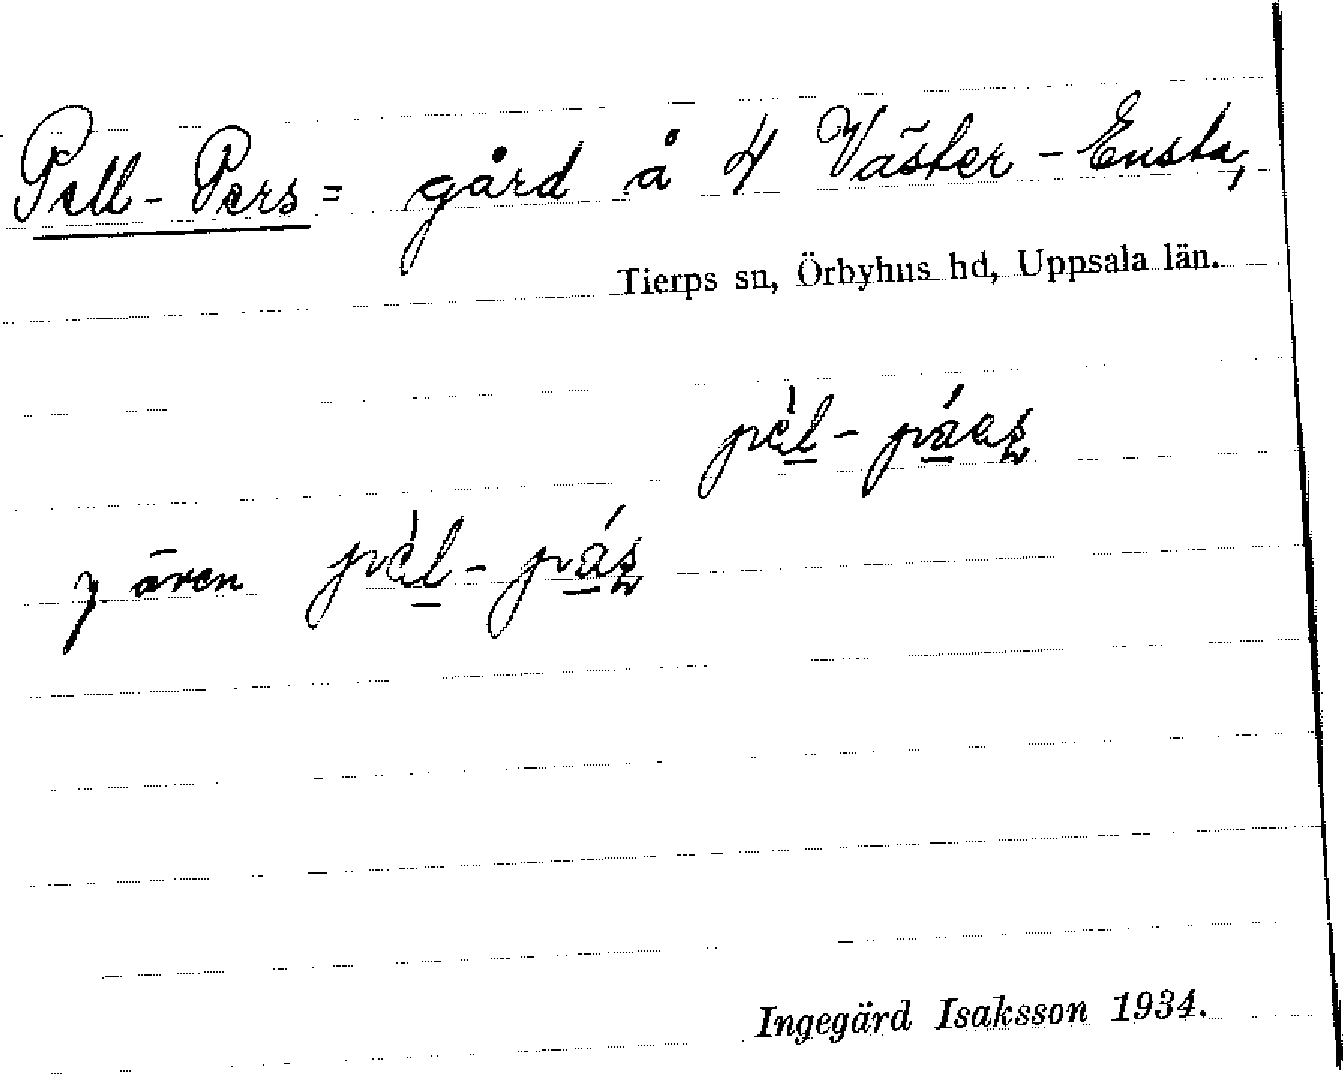 Pell-Pers = gård å 4 Väster-Ensta,
Tierps sn, Örbyhus hd, Uppsala län.
även
Ingegärd Isaksson 1934.